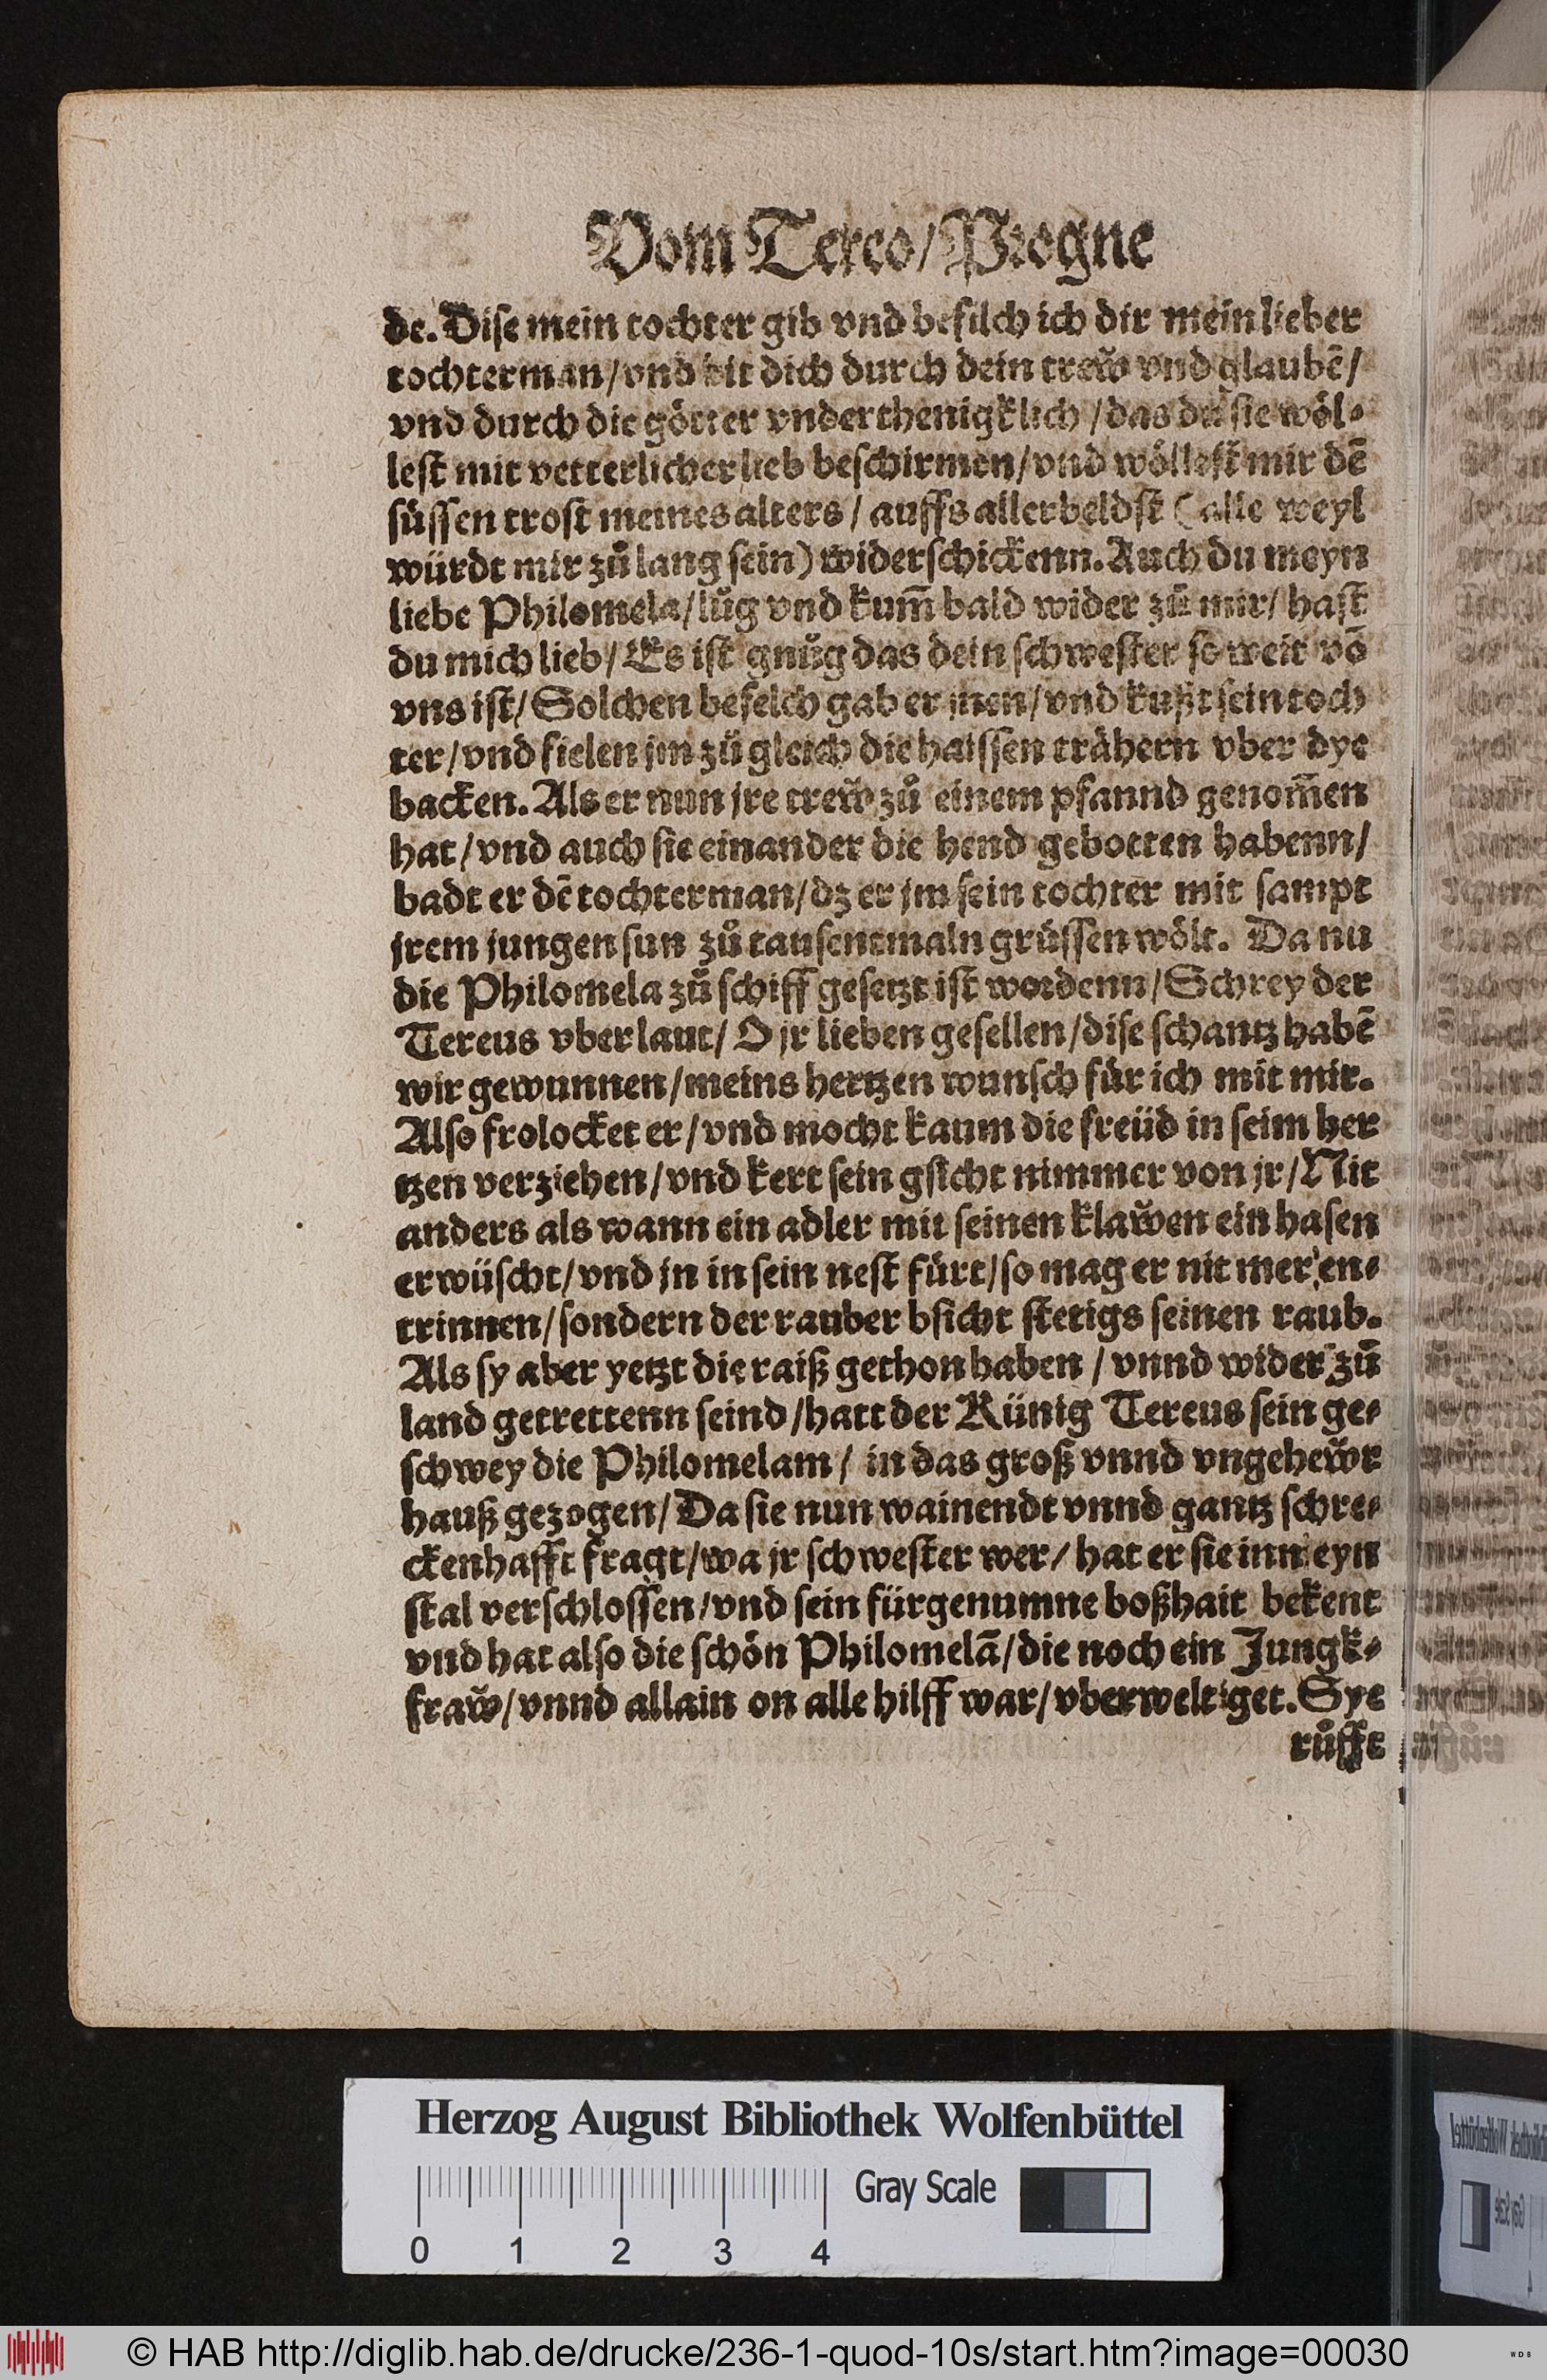 Vom Tereo/Progne
de. Diſe mein tochter gib vnd befilch ich dir mein lieber
tochterman/vnd bit dich durch dein trew̃ vnd glaubẽ/
vnd durch die götter vnderthenigklich/das du ſie wöl⸗
leſt mit vetterlicher lieb beſchirmen/vnd wölleſt mir dẽ
ſüſſen troſt meines alters/ auffs allerbeldſt (alle weyl
würdt mir zů lang ſein) widerſchickenn. Auch du meyn
liebe Philomela/lůg vnd kum̃ bald wider zů mir/ haſt
du mich lieb/ Es iſt gnůg das dein ſchweſter ſo weit võ
vns iſt/ Solchen befelch gab er jnen/vnd kußt ſein toch
ter/vnd fielen jm zů gleich die haiſſen trähern vber dye
backen. Als er nun jre trew̃ zů einem pfannd genom̃en
hat/vnd auch ſie einander die hend gebotten habenn/
badt er dẽ tochterman/dz er jm ſein tochter mit ſampt
jrem jungen ſun zů tauſentmaln grüſſen wölt. Da nu
die Philomela zů ſchiff geſetzt iſt wordenn/Schrey der
Tereus vberlaut/ O jr lieben geſellen/diſe ſchantz habẽ
wir gewunnen/meins hertzen wunſch für ich mit mir.
Alſo frolocket er/vnd mocht kaum die freüd in ſeim her
tzen verziehen/vnd kert ſein gſicht nimmer von jr/Nit
anders als wann ein adler mit ſeinen klaw̃en ein haſen
erwüſcht/vnd jn in ſein neſt fürt/ſo mag er nit mer en⸗
trinnen/ſondern der rauber bſicht ſtetigs ſeinen raub.
Als ſy aber yetzt die raiß gethon haben / vnnd wider zů
land getrettenn ſeind/hatt der Künig Tereus ſein ge⸗
ſchwey die Philomelam/ in das groß vnnd vngehew̃r
hauß gezogen/Da ſie nun wainendt vnnd gantz ſchre⸗
ckenhafft fragt/wa jr ſchweſter wer/ hat er ſie inn eyn
ſtal verſchloſſen/vnd ſein fürgenumne boßhait bekent
vnd hat alſo die ſchön Philomelã/die noch ein Jungk⸗
fraw̃/vnnd allain on alle hilff war/vberweltiget. Sye
růfft
Herzog August Bibliothek Wolfenbüttel
Gray Scale
0 1 2 3 4
© HAB http://diglib.hab.de/drucke/236-1-quod-10s/start.htm?image=00030
WDB